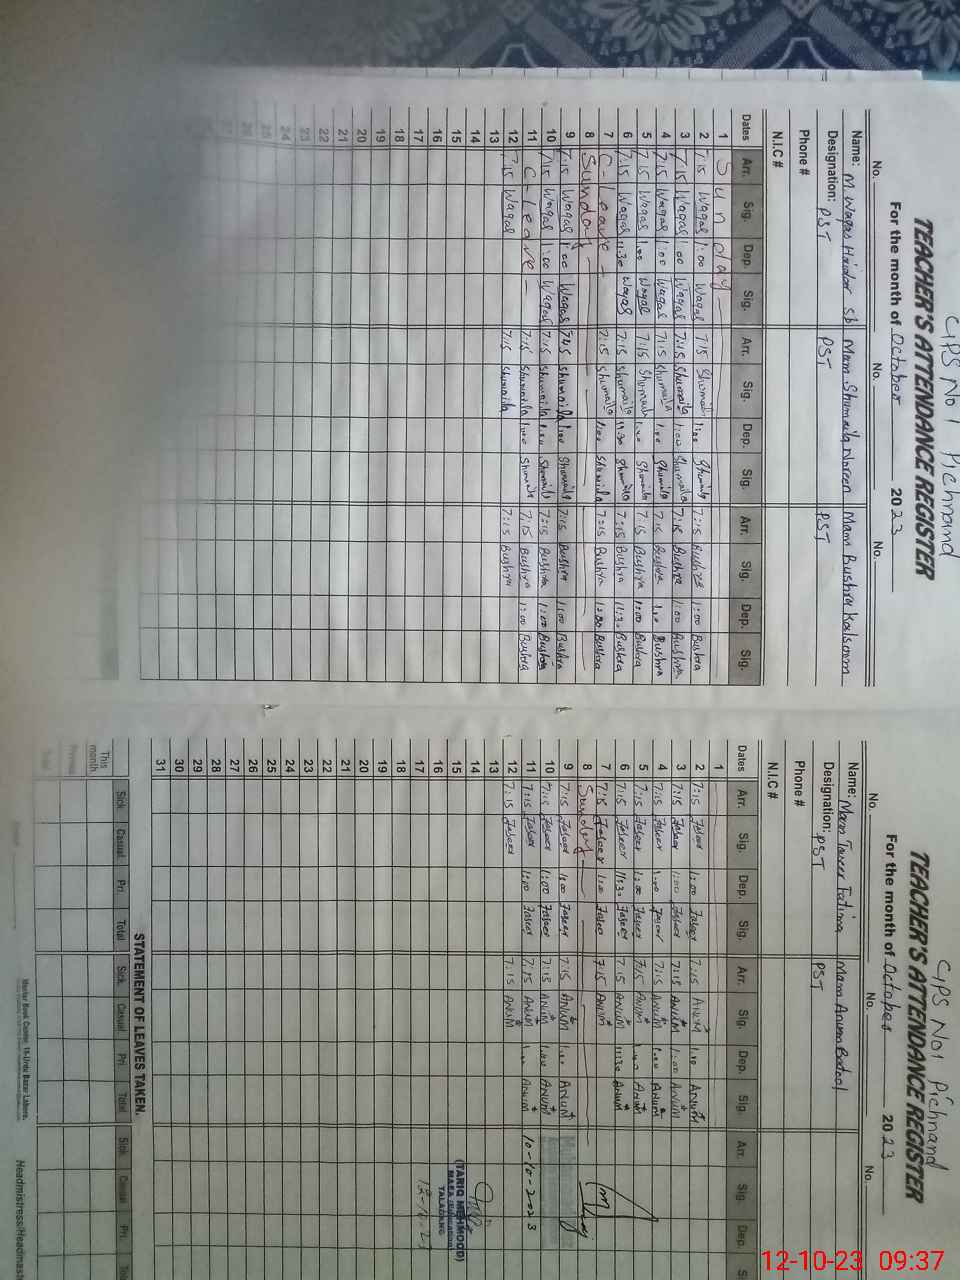 GPS No 1 Pichnand
TEACHER'S ATTENDANCE REGISTER
For the month of October 2023
No. No. No.
Name: M. Waqas Haidar Sb Mam Shumaila Noreen Mam Bushra Kalsoom
Designation: PST PST PST
Phone #
N.I.C #
Dates Arr. Sig. Dep. Sig. Arr. Sig. Dep. Sig. Arr. Sig. Dep. Sig.
1 Sunday
2 7:15 Waqas 1:00 Waqas 7:15 Shumaila 1:00 Shumaila 7:15 Bushra 1:00 Bushra
3 7:15 Waqas 1:00 Waqas 7:15 Shumaila 1:00 Shumaila 7:15 Bushra 1:00 Bushra
4 7:15 Waqas 1:00 Waqas 7:15 Shumaila 1:00 Shumaila 7:15 Bushra 1:00 Bushra
5 7:15 Waqas 1:00 Waqas 7:15 Shumaila 1:00 Shumaila 7:15 Bushra 1:00 Bushra
6 7:15 Waqas 11:30 Waqas 7:15 Shumaila 11:30 Shumaila 7:15 Bushra 11:30 Bushra
7 C-Leave 7:15 Shumaila 1:00 Shumaila 7:15 Bushra 1:00 Bushra
8 Sunday
9 7:15 Waqas 1:00 Waqas 7:15 Shumaila 1:00 Shumaila 7:15 Bushra 1:00 Bushra
10 7:15 Waqas 1:00 Waqas 7:15 Shumaila 1:00 Shumaila 7:15 Bushra 1:00 Bushra
11 C-Leave 7:15 Shumaila 1:00 Shumaila 7:15 Bushra 1:00 Bushra
12 7:15 Waqas 7:15 Shumaila 7:15 Bushra
13
14
15
16
17
18
19
20
21
22
23
24
25
26
27
GPS No 1 Pichnand
TEACHER'S ATTENDANCE REGISTER
For the month of October 2023
No. No. No.
Name: Mam Fatima Mam Anum Batool
Designation: PST PST
Phone #
N.I.C #
Dates Arr. Sig. Dep. Sig. Arr. Sig. Dep. Sig. Arr. Sig. Dep. Sig.
1
2 7:15 1:00 7:15 ANUM 1:00 ANUM
3 7:15 1:00 7:15 ANUM 1:00 ANUM
4 7:15 1:00 7:15 ANUM 1:00 ANUM
5 7:15 1:00 7:15 ANUM 1:00 ANUM
6 7:15 11:30 7:15 ANUM 11:30 ANUM
7 7:15 1:00 7:15 ANUM
8 Sunday
9 7:15 1:00 7:15 ANUM 1:00 ANUM
10 7:15 1:00 7:15 ANUM 1:00 ANUM
11 7:15 1:00 7:15 ANUM 1:00 ANUM 10-10-2023
12 7:15 7:15 ANUM
13
14
15 (TARIQ MEHMOOD)
16 TALAGANG
17 12-10-23
18
19
20
21
22
23
24
25
26
27
28
29
30
31
STATEMENT OF LEAVES TAKEN.
Sick Casual Pri. Total Sick Casual Pri Total Sick Casual Pri.
This month
Master Book Center, 14-Urdu Bazar Lahore.
Headmistress/Headmaster
12-10-23 09:37